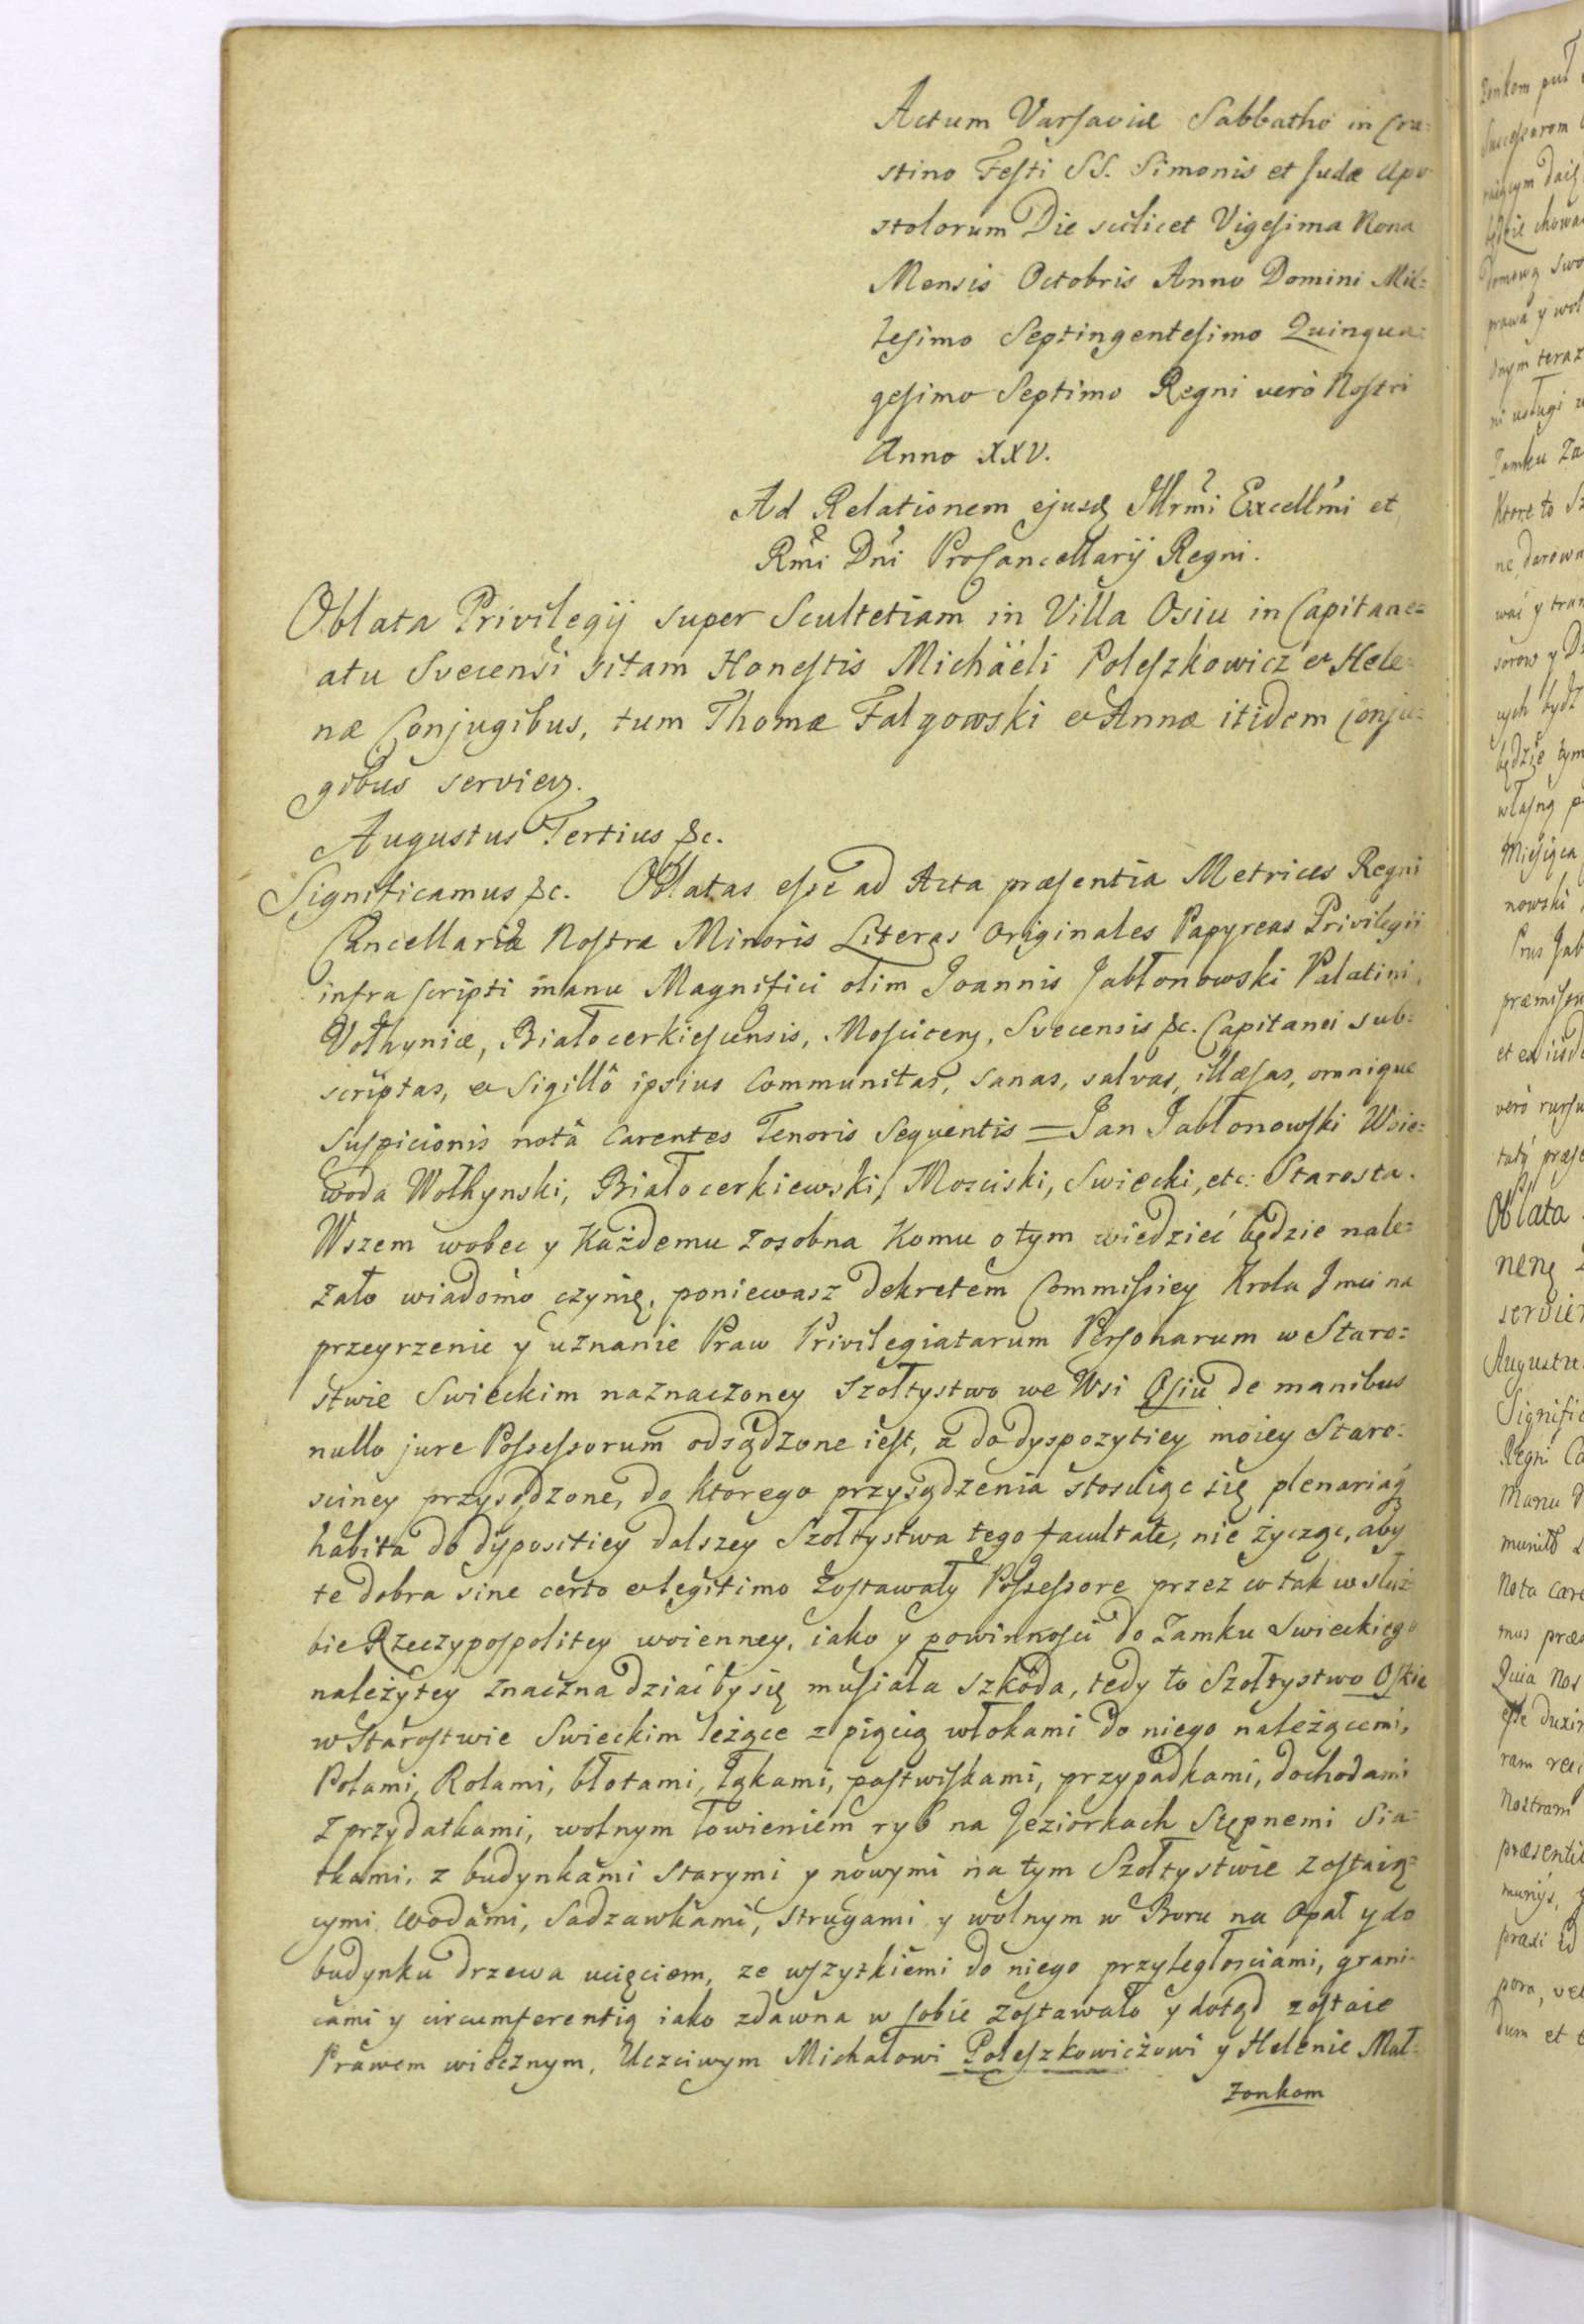 Actum Varsaviæ Sabbatho in Cra=
stino Festi SS. Simonis et Judæ Apo
stolorum Die scilicet Vigesima Nona
Mensis Octobris Anno Domini Mil=
lesimo Septingentesimo Quinqua=
gesimo Septimo Regni verò Nostri
Anno XXV.
Ad Relationem ejusq Illrmi Excellmi et
Rmi Dni ProCancellarij Regni.
Oblata Privilegij super Scultetiam in Villa Osiu in Capitane=
atu Svecensi sitam Honestis Michaëli Poleszkowicz et Hele=
næ Conjugibus, tum Thomæ Falgowski et Annæ itidem Conju=
gibus servien.
Augustus Tertius &c.
Significamus &c. Oblatas esse ad Acta præsentia Metrices Regni
Cancellariæ Nostræ Minoris Literas Originales Papyreas Privilegii
infra scripti manu Magnifici olim Joannis Jabłonowski Palatini
Volhyniæ, Białocerkiescensis, Moscicens, Svecensis &c. Capitanei sub=
scriptas, et Sigillô ipsius Communitas, sanas, salvas, illæsas, omnique
suspicionis notâ Carentes Tenoris Sequentis = Jan Jabłonowski Woie=
woda Wołhynski, Białocerkiewski, Mosciski, Swiecki, etc: Starosta.
Wszem wobec y Każdemu zosobna Komu o tym wiedzieć będzie nale=
żało wiadomo czynię, poniewasz dekretem Commissiey Krola Jmci na
przeyrzenie y uznanie Praw Privilegiatarum Personarum w Staro=
stwie Swieckim naznaczoney Szołtystwo we Wsi Osiu de manibus
nullo jure Possessorum odsądzone iest, a do dyspozytiey moiey Staro=
sciney przysądzone, do ktorego przysądzenia stosuiąc się plenariaq
habita do dypositiey dalszey Szołtystwa tego facultate, nie życząc, aby
te dobra sine certo et legitimo zostawały Possessore przez co tak w służ=
bie Rzeczypospolitey woienney, iako y powinnosci do Zamku Swieckiego
należytey znaczna dziać by się musiała szkoda, tedy to Szołtystwo Oskie
w Starostwie Swieckim leżące z pięcią włokami do niego należącemi,
Polami, Rolami, błotami, łąkami, pastwiskami, przypadkami, dochodami
z przydatkami, wolnym łowieniem ryb na Jeziorkach Stępnemi Sia=
tkami, z budynkami starymi y nowymi na tym Szołtystwie zostaią=
cymi wodami, Sadzawkami, strugami y wolnym w Boru na opał y do
budynku drzewa ucięciem, ze wszyzkiemi do niego przyległosciami, grani=
cami y circumferentią iako zdawna w sobie zostawało y dotąd zostaie
Prawem wiecznym, Uczciwym Michałowi Poleszkowiczowi y Helenie Mał=
żonkom